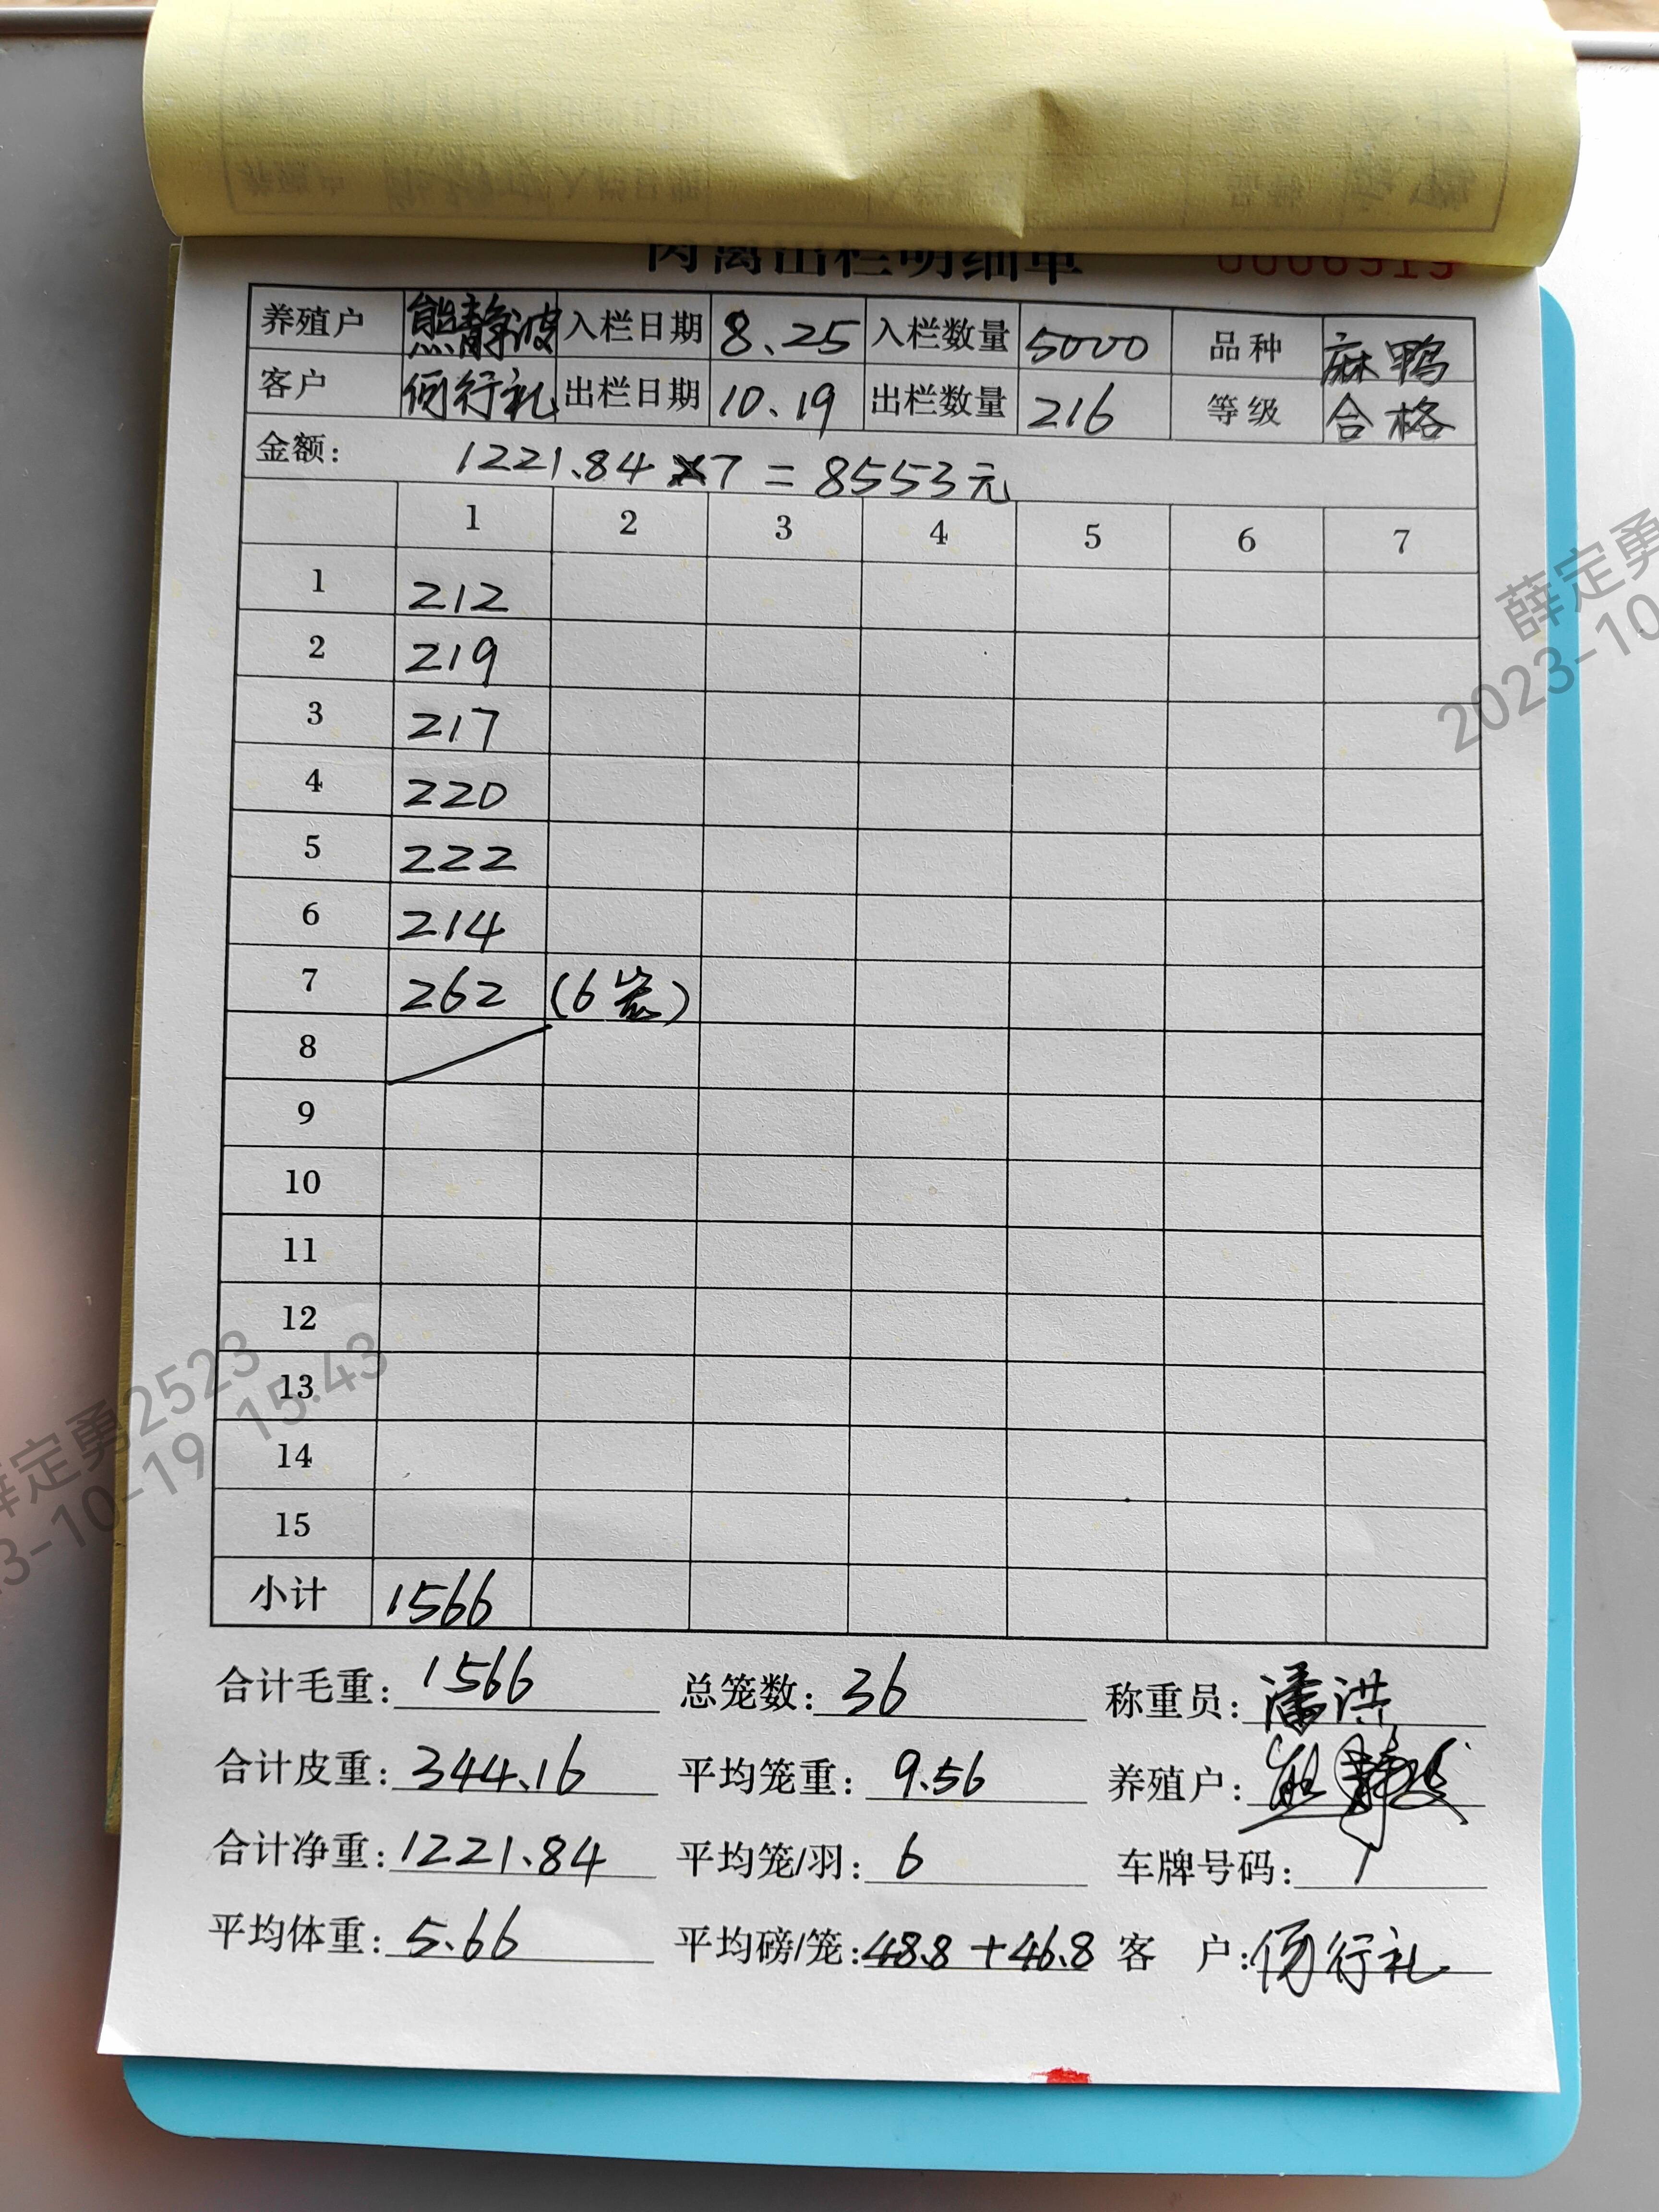 肉禽出栏明细单 0006919
养殖户 熊静波 入栏日期 8.25 入栏数量 5000 品种 麻鸭
客户 何行礼 出栏日期 10.19 出栏数量 216 等级 合格
金额: 1221.84 ×7 = 8553元
1 2 3 4 5 6 7
1 212
2 219
3 217
4 220
5 222
6 214
7 262 (6笼)
8
9
10
11
12
13
14
15
小计 1566
合计毛重: 1566 总笼数: 36 称重员: 潘洪
合计皮重: 344.16 平均笼重: 9.56 养殖户: 熊静波
合计净重: 1221.84 平均笼/羽: 6 车牌号码: /
平均体重: 5.66 平均磅/笼: 48.8 + 46.8 客 户: 何行礼
薛定勇
2023-10
薛定勇2523
3-10-19 15:43